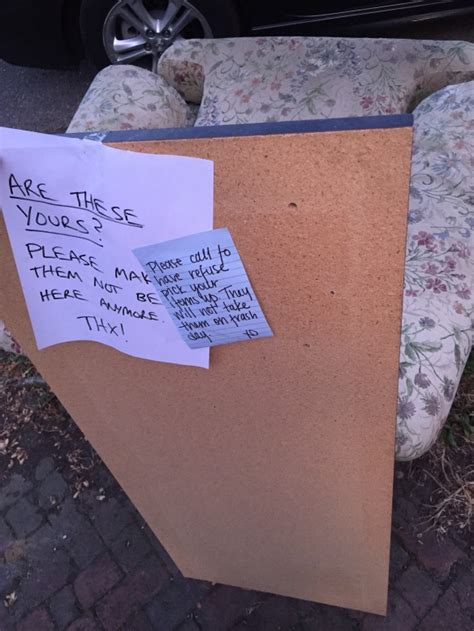 ARE THESE
YOURS?
PLEASE MAK
THEM NOT BE
HERE ANYMORE.
THX!
Please call to
have refuse
pick your
items up. They
will not take
them on trash
day.